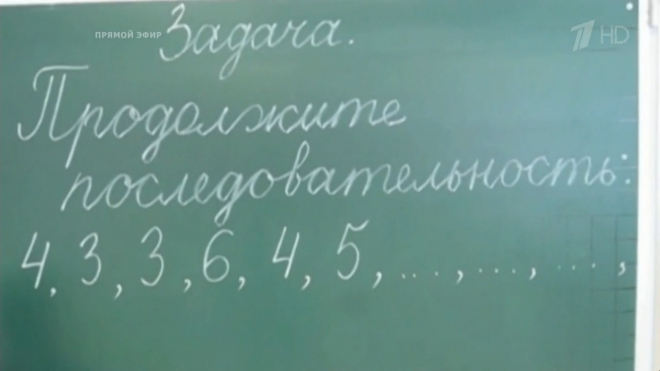 ПРЯМОЙ ЭФИР
Задача.
HD
Продолжите
последовательность:
4, 3, 3, 6, 4, 5, ..., ..., ...,